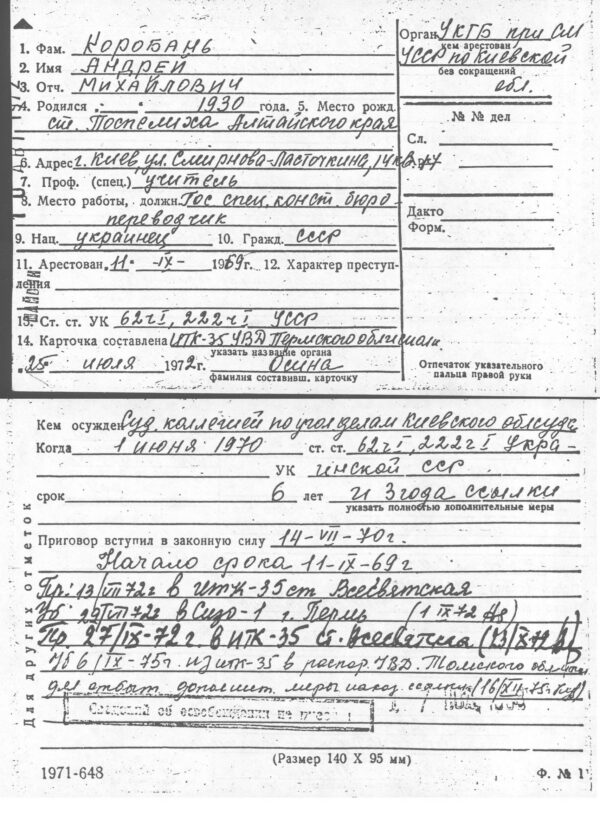 1. Фам. КОРОБАНЬ
2. Имя АНДРЕЙ
3. Отч. МИХАЙЛОВИЧ
4. Родился 1930 года. 5. Место рожд.
ст. Поспелиха Алтайского края
6. Адрес г. Киев, ул. Смирнова-Ласточкина, 14 кв.
7. Проф. (спец.) учитель
8. Место работы, должн. Гос. спец. конст. бюро-
переводчик
9. Нац. украинец 10. Гражд. СССР
11. Арестован "11" -IX- 1969г. 12. Характер преступ-
ления
13. Ст. ст. УК 62 ч I, 222 ч I УССР
14. Карточка составлена ИТК-35 УВД Пермского
указать название органа
"25" июля 1972г. Осина
фамилия составивш. карточку
Орган УКГБ при СМ
кем арестован
УССР по Киевской
без сокращений
обл.
№ № дел
Сл.
Дакто
Форм.
Отпечаток указательного
пальца правой руки
Кем осужден Суд. коллегией по угол. делам Киевского облсуда
Когда 1 июня 1970 ст. ст. 62 ч I, 222 ч I Укра-
УК инской ССР
срок 6 лет и 3 года ссылки
указать полностью дополнительные меры
Приговор вступил в законную силу 14-VII-70г.
Начало срока 11-IX-69г
Пр: 13/VII 72г в ИТК-35 ст Всесвятская
Уб 29/VIII 72г в Сизо-1 г. Пермь (1 IX 72
Пр 27/IX-72г. в ИТК-35 ст. Всесвятская
Уб 6/IX-75г. из итк-35 в распор. УВД. Томского
для отбыт. дополнит. меры наказ. ссылки (16/XII-75г.
Сведений об освобождении не
Для других отметок
(Размер 140 X 95 мм)
1971-648
Ф. № 1